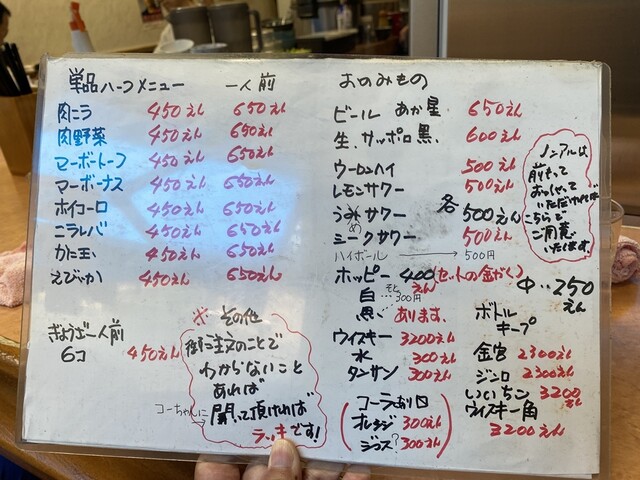 単品ハーフメニュー 一人前
肉ニラ 450えん 650えん
肉野菜 450えん 650えん
マーボートーフ 450えん 650えん
マーボーナス 450えん 650えん
ホイコーロ 450えん 650えん
ニラレバ 450えん 650えん
かに玉 450えん 650えん
えびチか 450えん 650えん
ぎょうざ一人前
6コ 450えん
※その他
御注文のことで
わからないこと
あれば
コーちゃんに→ 聞いて頂ければ
ラッキーです!
おのみもの
ビール あか星 650えん
生、サッポロ黒、 600えん
ウーロンハイ 500えん
レモンサワー 500えん
うめサワー 各500えん
シークサワー 500えん
ハイボール → 500円
ホッピー 400えん(セットの金がく)
中…250えん
白 そと…300円
黒 あります、
ウイスキー 3200えん
水 300えん
タンサン 300えん
コーラ
オレンジ 300えん
ジュース 300えん
ノンアルは
前もって
おっしゃって
いただければ
こちらで
ご用意
いたします
ボトル
キープ
金宮 2300えん
ジンロ 2300えん
いいちこ 3200えん
ウイスキー角
3200えん